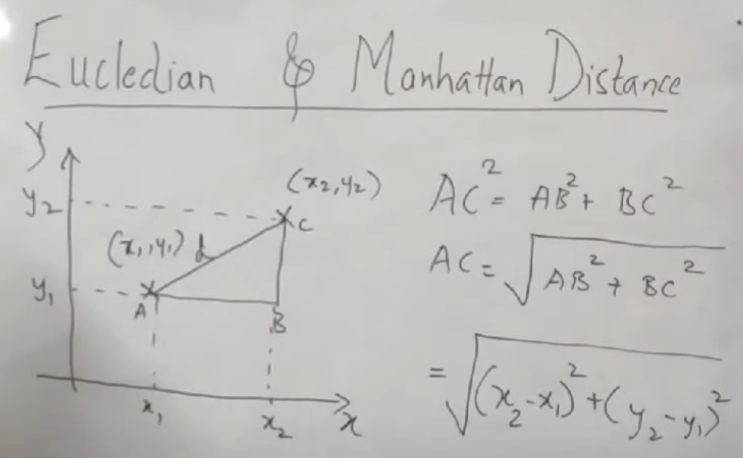 Eucledian & Manhattan Distance
y
y₂
(x₂,y₂)
C
(x₁,y₁) d
y₁
A
B
x₁
x₂
x
AC² = AB² + BC²
AC = √(AB² + BC²)
= √((x₂-x₁)² + (y₂-y₁)²)